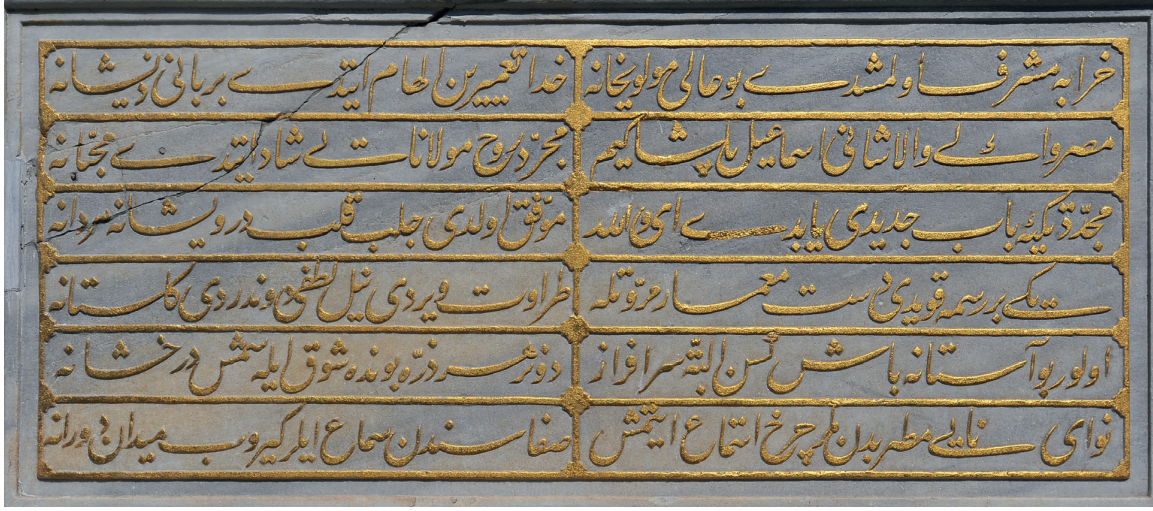 خرابه مشرف اولمشدی بو حالی مولویخانه
خدا تعمیرین الهام ایتدی بر بانی ذیشانه
مصر والی والاشانی اسماعیل پاشا کیم
مجرد روح مولانایی شاد ایتدی محبانه
مجدد تکیه باب جدیدی یاپدی ای والله
موفق اولدی جلب قلب درویشانه مردانه
یکی بر رسمه قویدی دست معمار مروتله
طراوت ویردی نیل لطفی دوندردی گلستانه
اولور بو آستانه باش کسن البته سرافراز
دونر هر ذره بونده شوق ایله شمس درخشانه
نوای نایی مطربدن مگر چرخ استماع ایتمش
صفاسندن سماع ایلر گیروب میدان دورانه